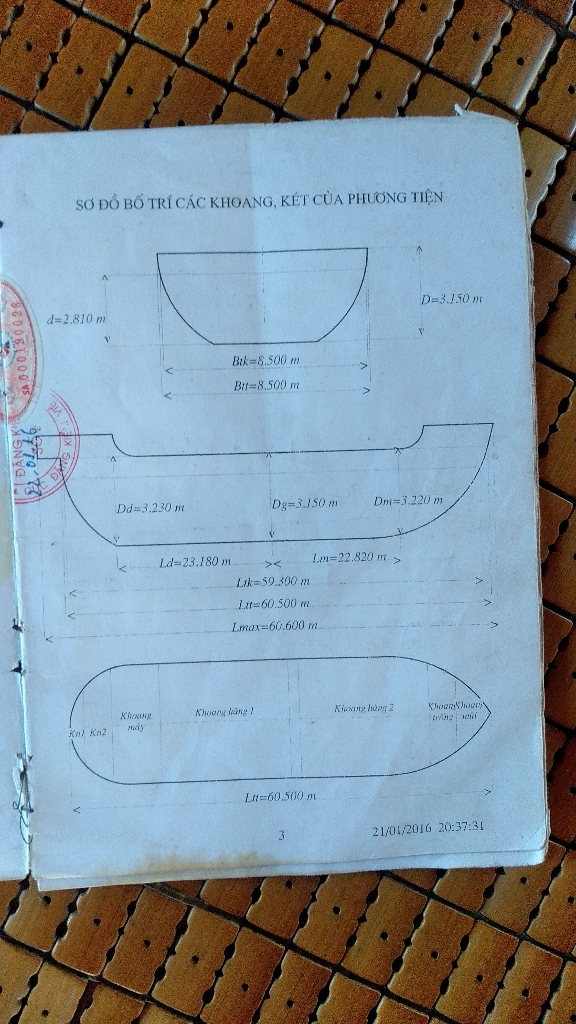 SƠ ĐỒ BỐ TRÍ CÁC KHOANG, KÉT CỦA PHƯƠNG TIỆN
d=2.810 m
D=3.150 m
Btk=8.500 m
Btt=8.500 m
SA 000190028
ĐĂNG KIỂ
Dd=3.230 m
Dg=3.150 m
Dm=3.220 m
Ld=23.180 m
Lm=22.820 m
Ltk=59.300 m
Ltt=60.500 m
Lmax=60.600 m
Kn1
Kn2
Khoang máy
Khoang hàng 1
Khoang hàng 2
Khoang trống
Khoang mũi
Ltt=60.500 m
3
21/01/2016 20:37:31